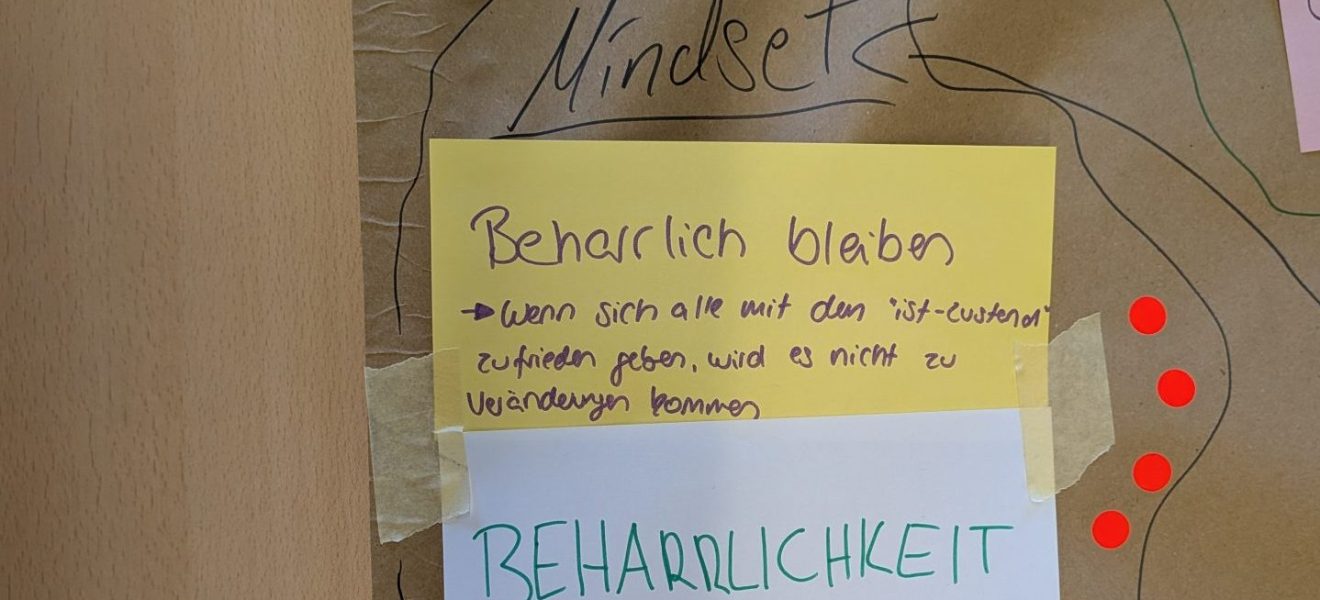 Mindset
Beharrlich bleiben
→ Wenn sich alle mit den "ist-zustand"
zufrieden geben, wird es nicht zu
Veränderungen kommen
BEHARRLICHKEIT